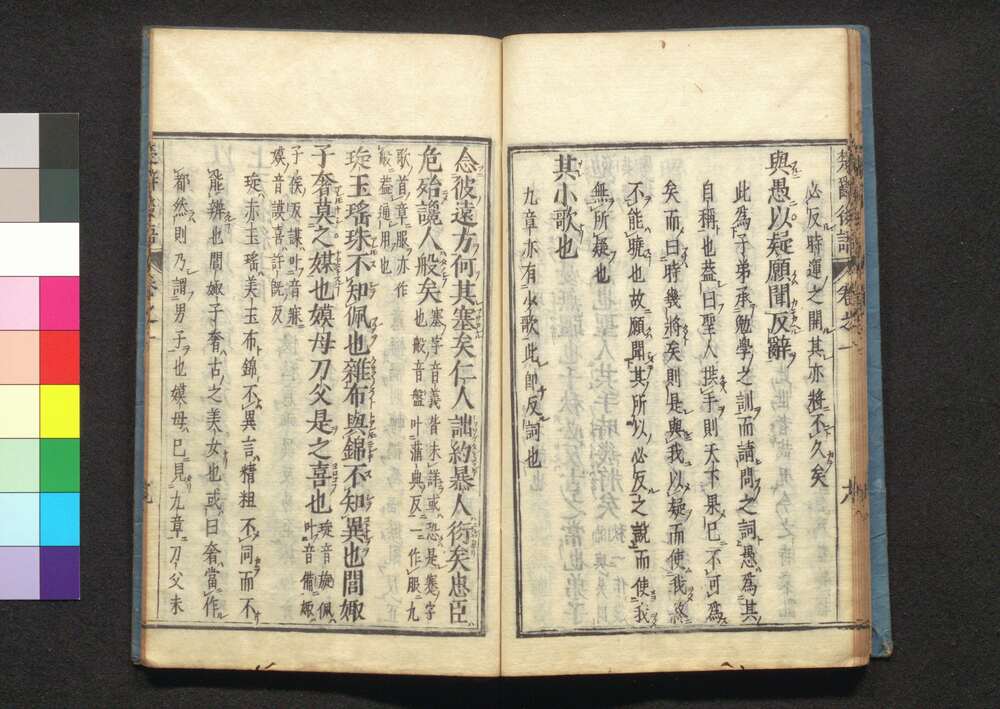 必反時運之開其亦將不久矣
與愚以疑願聞反辭
此為子弟承勉學之訓而請問之詞愚為其
自稱也蓋曰聖人拱手則天下果已不可為
矣而曰時幾將矣則是與我以疑而使我終
不能曉也故願聞其所以必反之說而使我
無所疑也
其小歌也
九章亦有少歌此即反詞也
念彼遠方何其塞矣仁人詘約暴人衍矣忠臣
危殆讒人般矣
塞字音義皆未詳或恐是蹇字
也般音盤叶蒲典反一作服九
歌首章服亦作
般蓋通用也
琁玉瑤珠不知佩也雜布與錦不知異也閭娵
子奢莫之媒也嫫母刀父是之喜也
琁音旋佩
叶音備娵
子侯反媒叶音寐
嫫音謨喜許旣反
琁赤玉瑤美玉布錦不異言精粗不同而不
能辨也閭娵子奢古之美女也或曰奢當作
都然則乃謂男子也嫫母已見九章刀父未